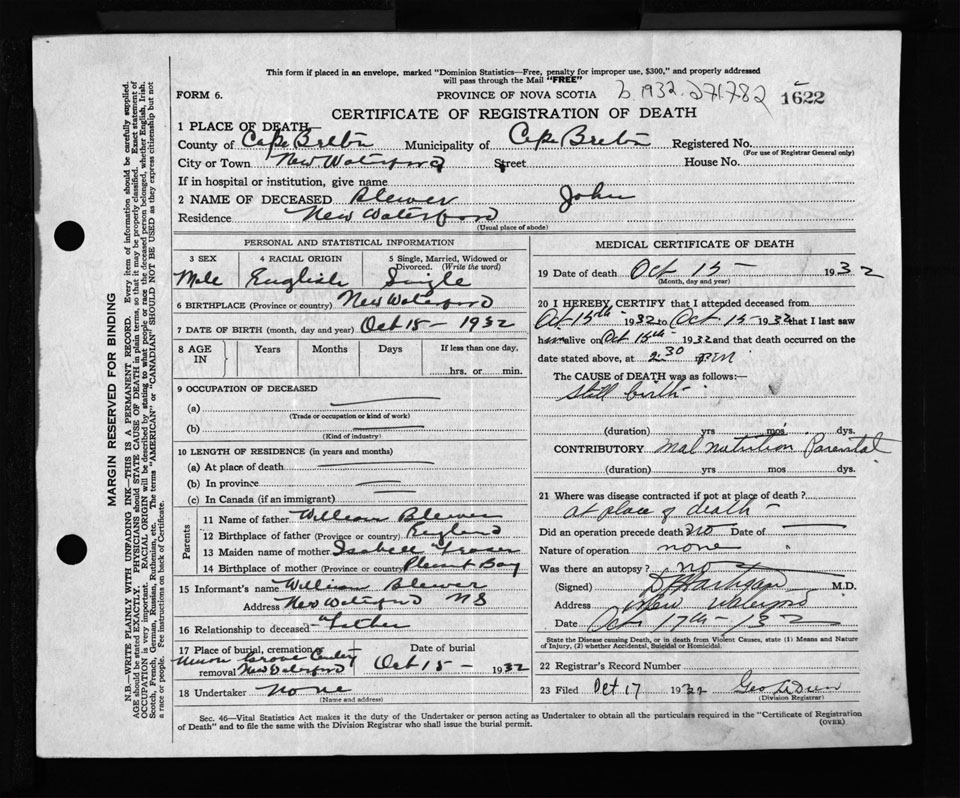 This form if placed in an envelope, marked "Dominion Statistics—Free, penalty for improper use, $300," and properly addressed
will pass through the Mail "FREE"
FORM 6. PROVINCE OF NOVA SCOTIA b. 1932. 271782 1622
CERTIFICATE OF REGISTRATION OF DEATH
1 PLACE OF DEATH
County of Cape Breton Municipality of Cape Breton Registered No.
(For use of Registrar General only)
City or Town New Waterford Street House No.
If in hospital or institution, give name
2 NAME OF DECEASED Blewer John
Residence New Waterford
(Usual place of abode)
PERSONAL AND STATISTICAL INFORMATION
3 SEX 4 RACIAL ORIGIN 5 Single, Married, Widowed or
Divorced. (Write the word)
Male English Single
6 BIRTHPLACE (Province or country) New Waterford
7 DATE OF BIRTH (month, day and year) Oct 15 - 1932
8 AGE IN Years Months Days If less than one day,
hrs. or min.
9 OCCUPATION OF DECEASED
(a)
(Trade or occupation or kind of work)
(b)
(Kind of industry)
10 LENGTH OF RESIDENCE (in years and months)
(a) At place of death
(b) In province
(c) In Canada (if an immigrant)
Parents
11 Name of father William Blewer
12 Birthplace of father (Province or country) England
13 Maiden name of mother Isabell Fraser
14 Birthplace of mother (Province or country) Plesent Bay
15 Informant's name William Blewer
Address New Waterford NS
16 Relationship to deceased Father
17 Place of burial, cremation or Date of burial
Grove
removal New Waterford Oct 15 - 1932
18 Undertaker none
(Name and address)
MEDICAL CERTIFICATE OF DEATH
19 Date of death Oct 15 - 1932
(Month, day and year)
20 I HEREBY CERTIFY that I attended deceased from
Oct 15th 1932 to Oct 15 - 1932 that I last saw
him alive on Oct 15th 1932 and that death occurred on the
date stated above, at 2.30 PM
The CAUSE of DEATH was as follows:—
Still birth
(duration) yrs mos. dys.
CONTRIBUTORY Mal nutrition Parental
(duration) yrs mos dys.
21 Where was disease contracted if not at place of death?
at place of death -
Did an operation precede death no Date of
Nature of operation none
Was there an autopsy? no
(Signed) M.D.
Address New Waterford
Date Oct 17th - 1932
State the Disease causing Death, or in death from Violent Causes, state (1) Means and Nature
of Injury, (2) whether Accidental, Suicidal or Homicidal.
22 Registrar's Record Number
23 Filed Oct 17 1932 Geo
(Division Registrar)
Sec. 46—Vital Statistics Act makes it the duty of the Undertaker or person acting as Undertaker to obtain all the particulars required in the "Certificate of Registration
of Death" and to file the same with the Division Registrar who shall issue the burial permit. (OVER)
MARGIN RESERVED FOR BINDING
N.B.—WRITE PLAINLY WITH UNFADING INK—THIS IS A PERMANENT RECORD. Every item of information should be carefully supplied.
AGE should be stated EXACTLY. PHYSICIANS should STATE CAUSE OF DEATH in plain terms, so that it may be properly classified. Exact statement of
OCCUPATION is very important. RACIAL ORIGIN will be described by stating to what people or race the deceased person belonged, whether English, Irish,
Scotch, French, German, Russian, Ruthenian, etc. The terms "AMERICAN" or "CANADIAN" SHOULD NOT BE USED as they express citizenship but not
a race or people. Fee instructions on back of Certificate.